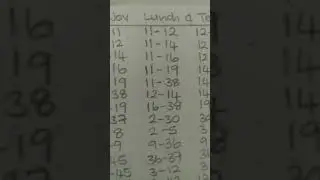 Joy Lunch & Te
11 11-12 12-
12 11-14 12
-14 11-16 12
16 11-19 14
19 11-38 14
38 12-14 14
-19 16-38 19
37 2-30 30
8 2-5 3
-9 9-36 9
45 36-39
-45 3-12 3